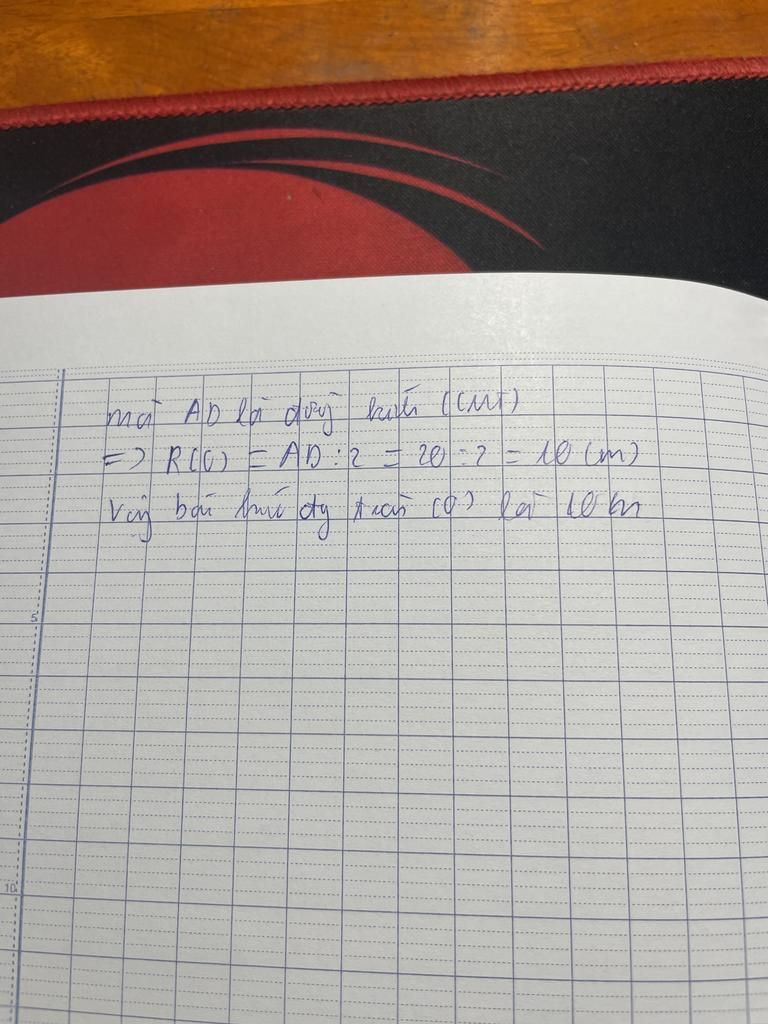 mà AD là đường kính (CMT)
=> R(O) = AD : 2 = 20 : 2 = 10 (m)
Vậy bán kính đg tròn (O) là 10 m
5
10